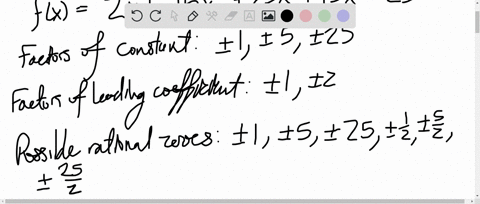 f(x) = 2
Factors of constant: ±1, ±5, ±25
Factors of leading coefficient: ±1, ±2
Possible rational zeroes: ±1, ±5, ±25, ±1/2, ±5/2,
± 25/2